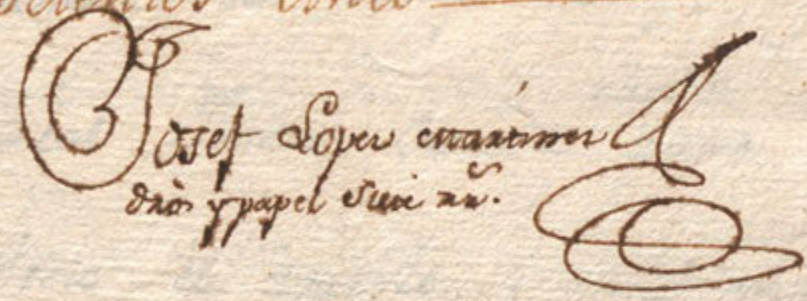 Josef Lopez Martinez
dros y papel siete